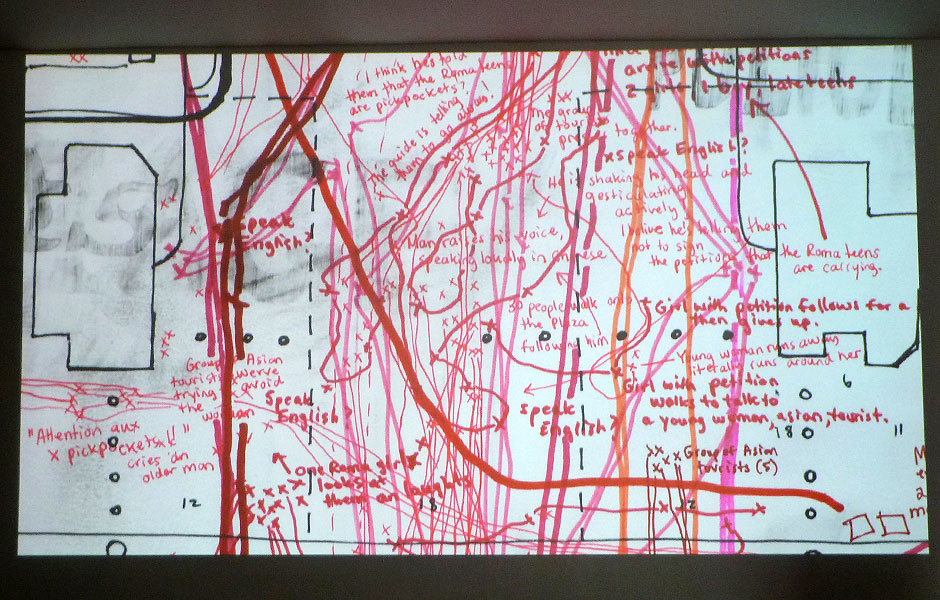 "I think he's told
them that the Roma teens
are pickpockets?
The guide is telling
them to
arrive with petitions
2 girls 1 boy, late teens
together.
x Speak English?
He is shaking his head and
gesticulating
actively
I believe he's telling them
not to sign
the petitions that the Roma teens
are carrying.
Speak
English?
Man raises his voice,
speaking loudly in Chinese
30 people walk onto
the plaza
following him
Girl with petition follows for a
then gives up.
Young woman runs away
literally runs around her
Girl with petition
walks to talk to
a young woman, asian, tourist.
Group Asian
tourists swerve
trying avoid
the woman
Speak
English?
Speak
English?
"Attention aux
x pickpockets!!"
cries an
older man
one Roma girl
looks at
them and laughs
Group of Asian
tourists (5)
6
18
11
12
18
12